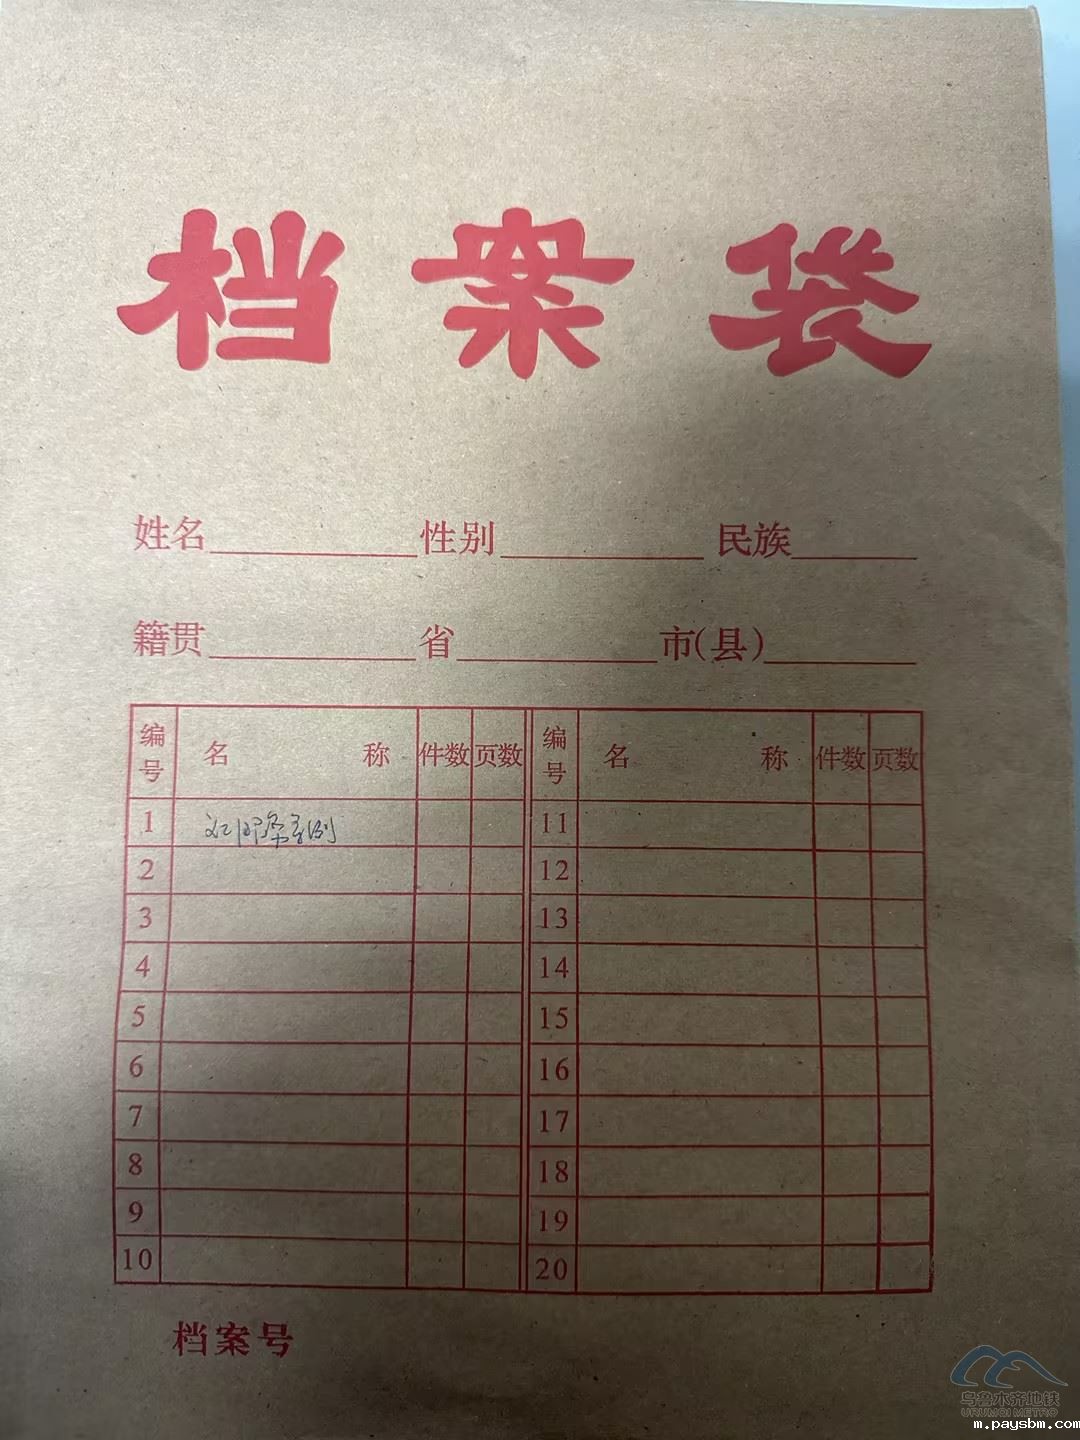 档案袋
姓名 性别 民族
籍贯 省 市(县)
编号 名称 件数 页数 编号 名称 件数 页数
1 11
2 12
3 13
4 14
5 15
6 16
7 17
8 18
9 19
10 20
档案号
乌鲁木齐地铁
URUMQI METRO
m.paysbm.com